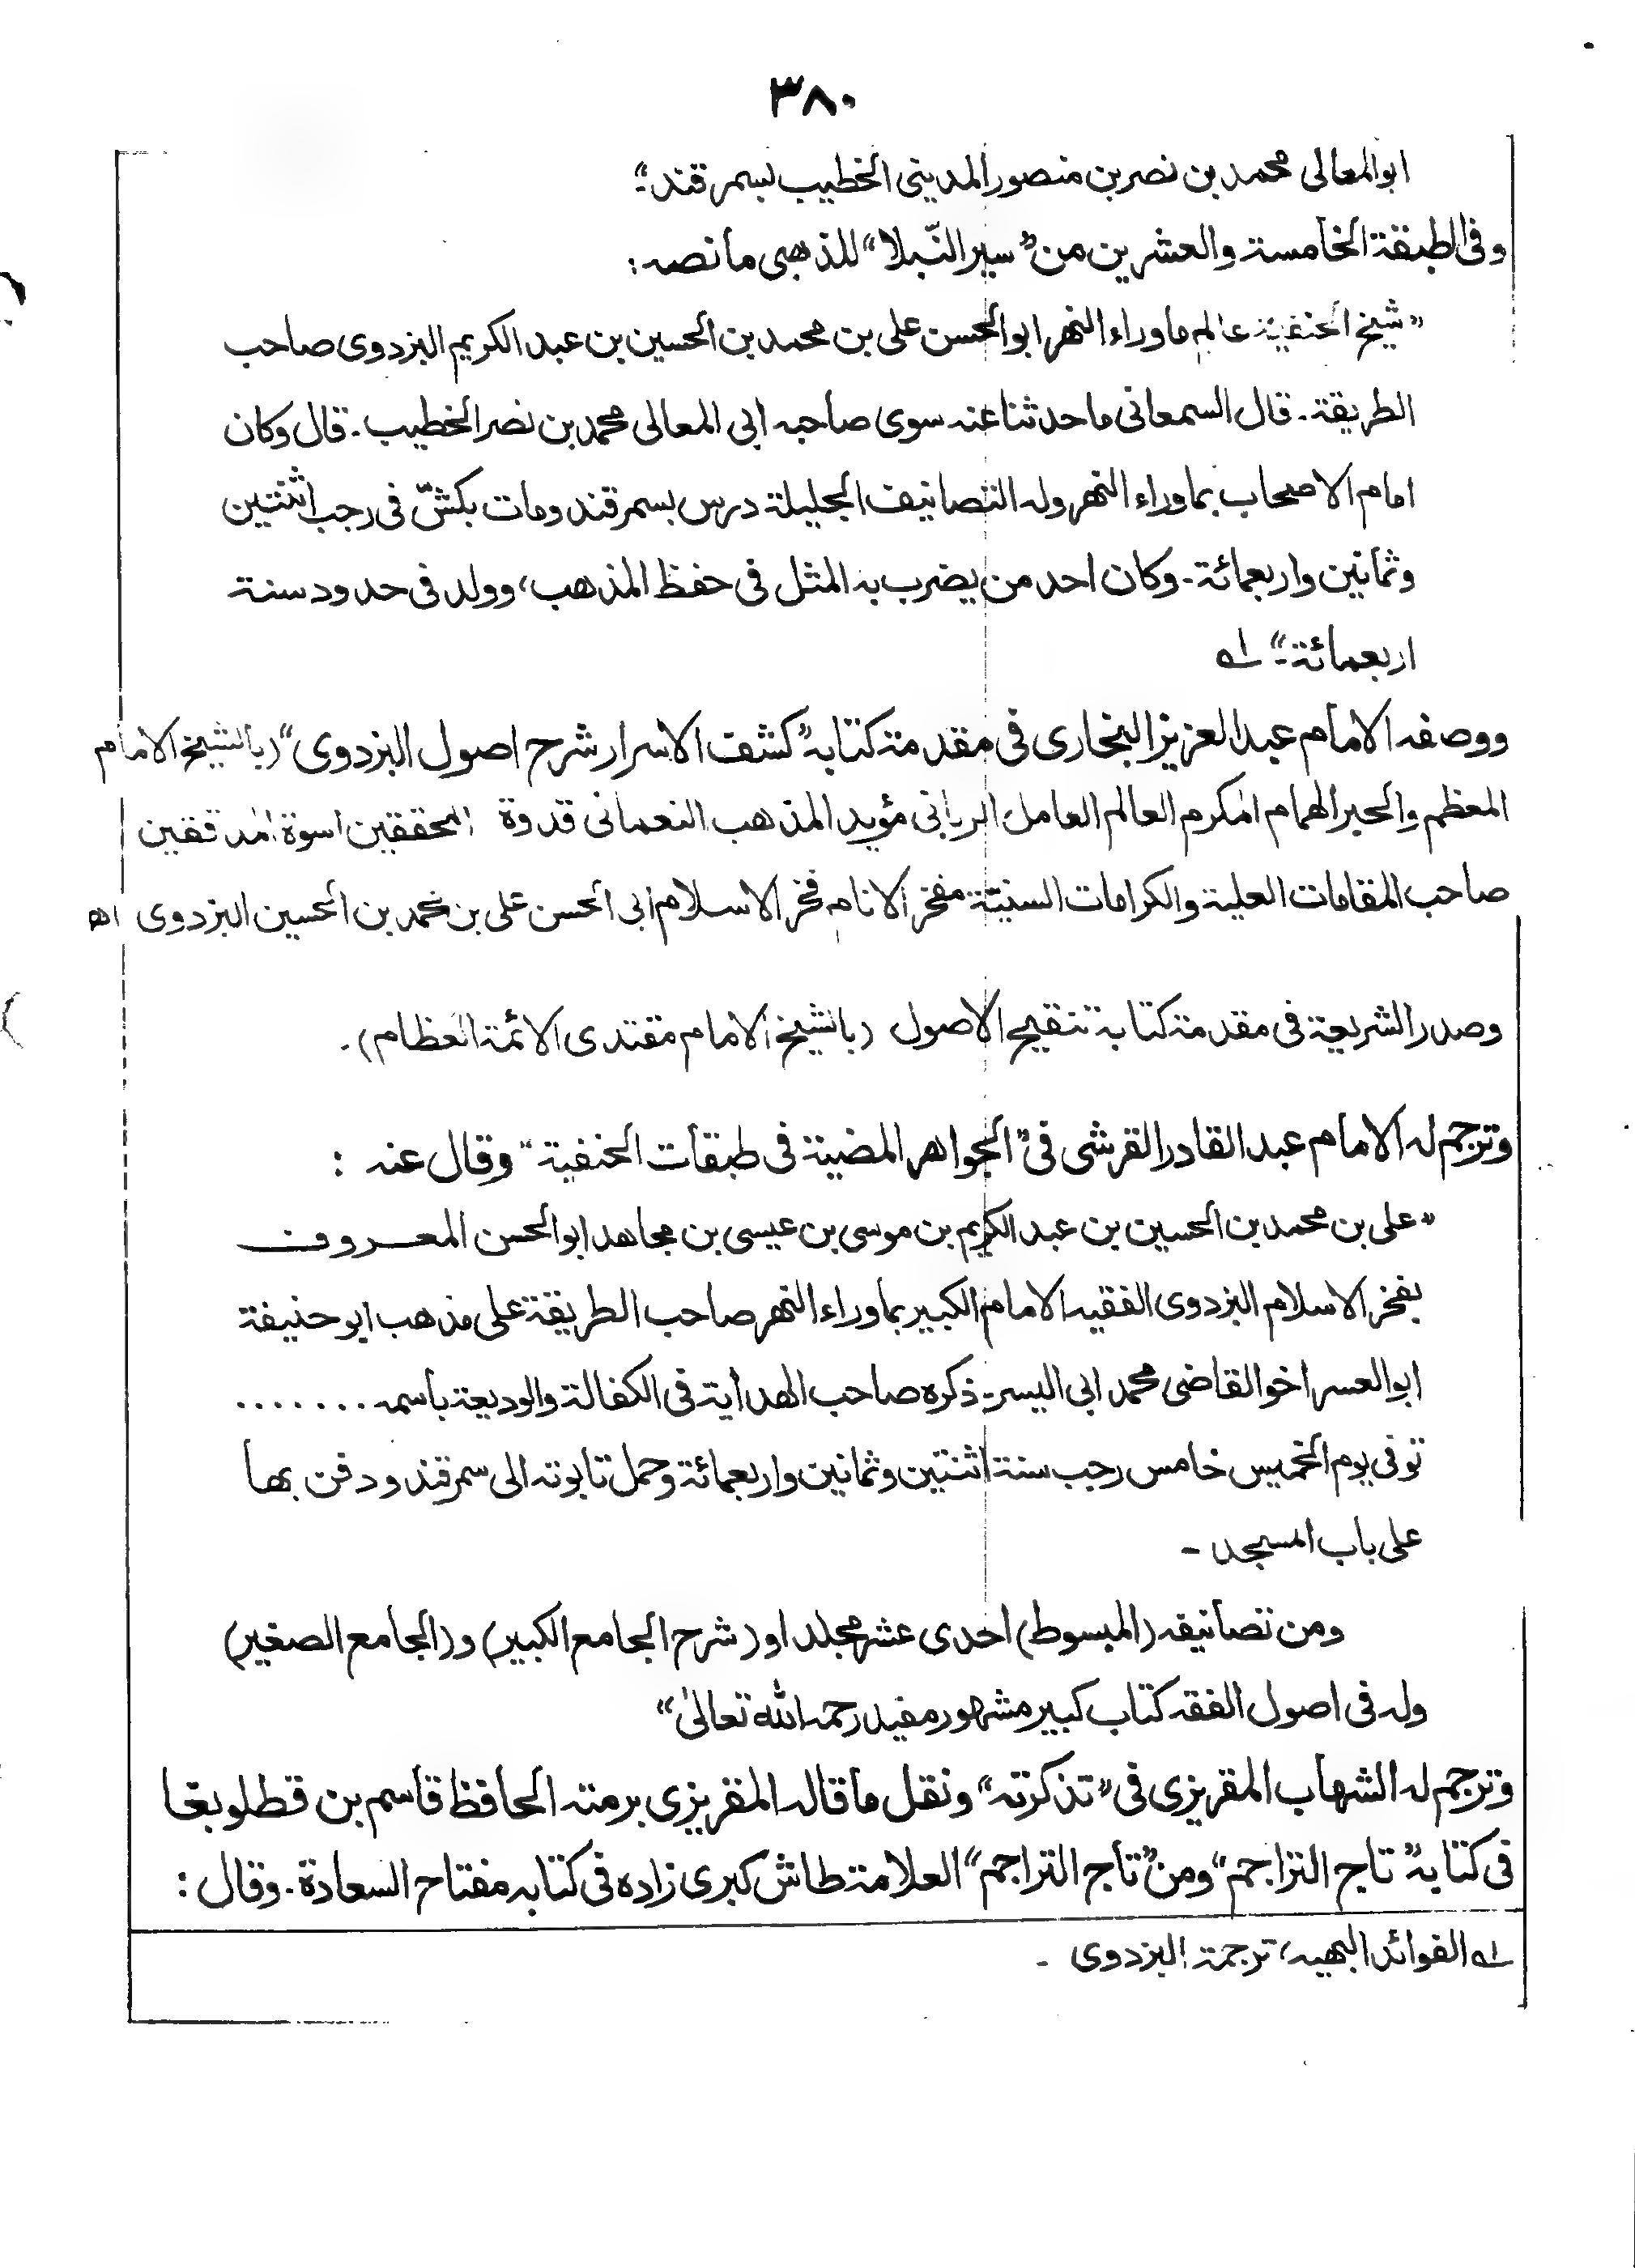 ٣٨٠
ابوالمعالى محمد بن نصر بن منصور المدينى الخطيب بسمرقند"۔
وفى الطبقة الخامسة والعشرين من "سير النّبلا" للذهبى مانصه:
"شيخ الحنفية عالم ماوراء النهر ابوالحسن على بن محمد بن الحسين بن عبد الكريم البزدوى صاحب
الطريقة۔ قال السمعانى ماحدثنا عنه سوى صاحبه ابى المعالى محمد بن نصر الخطيب۔ قال وكان
امام الاصحاب بماوراء النهر وله التصانيف الجليلة درس بسمرقند ومات بكشّ فى رجب اثنتين
وثمانين واربعمائة۔ وكان احد من يضرب به المثل فى حفظ المذهب، وولد فى حدود سنة
اربعمائة۔" لہ
ووصفه الامام عبد العزيز البخارى فى مقدمة كتابه "كشف الاسرار شرح اصول البزدوى" (بالشيخ الامام
المعظم والحبر الهمام المكرم العالم العامل الربانى مؤيد المذهب النعمانى قدوة المحققين اسوة المدققين
صاحب المقامات العلية والكرامات السنيّة مفخر الانام فخر الاسلام ابى الحسن على بن محمد بن الحسين البزدوى اھ
وصدر الشريعة فى مقدمة كتابة تنقيح الاصول (بالشيخ الامام مقتدى الائمة العظام)۔
وترجم له الامام عبد القادر القرشى فى "الجواهر المضية فى طبقات الحنفية" وقال عنه :
"على بن محمد بن الحسين بن عبد الكريم بن موسى بن عيسى بن مجاهد ابوالحسن المعروف
بفخر الاسلام البزدوى الفقيه الامام الكبير بماوراء النهر صاحب الطريقة على مذهب ابو حنيفة
ابوالعسر اخو القاضى محمد ابى اليسر۔ ذكره صاحب الهداية فى الكفالة والوديعة باسمه .......
توفى يوم الخميس خامس رجب سنة اثنتين وثمانين واربعمائة وحمل تابوته الى سمرقند ودفن بها
على باب المسجد -
ومن تصانيفه (المبسوط) احدى عشر مجلدا و(شرح الجامع الكبير) و(الجامع الصغير)
وله فى اصول الفقه كتاب كبير مشهور مفيد رحمه الله تعالىٰ"
وترجم له الشهاب المقريزى فى "تذكرته" ونقل ماقاله المقريزى برمته الحافظ قاسم بن قطلوبغا
فى كتابه "تاج التراجم" ومن "تاج التراجم" العلامة طاش كبرى زاده فى كتابه مفتاح السعادة۔ وقال :
لہ الفوائد البهيه، ترجمة البزدوى -